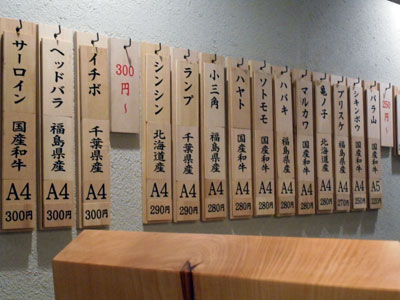 サーロイン 国産和牛 A4 300円
ヘッドバラ 福島県産 A4 300円
イチボ 千葉県産 A4 300円
300円～
シンシン 北海道産 A4 290円
ランプ 千葉県産 A4 290円
小三角 福島県産 A4 280円
ハヤト 国産和牛 A4 280円
ソトモモ 国産和牛 A4 280円
ハバキ 国産和牛 A4 280円
マルカワ 国産和牛 A4 280円
亀ノ子 北海道産 A4 280円
ブリスケ 福島県産 A4 270円
シキンボウ 国産和牛 A4 250円
バラ山 国産和牛 A5
250円～